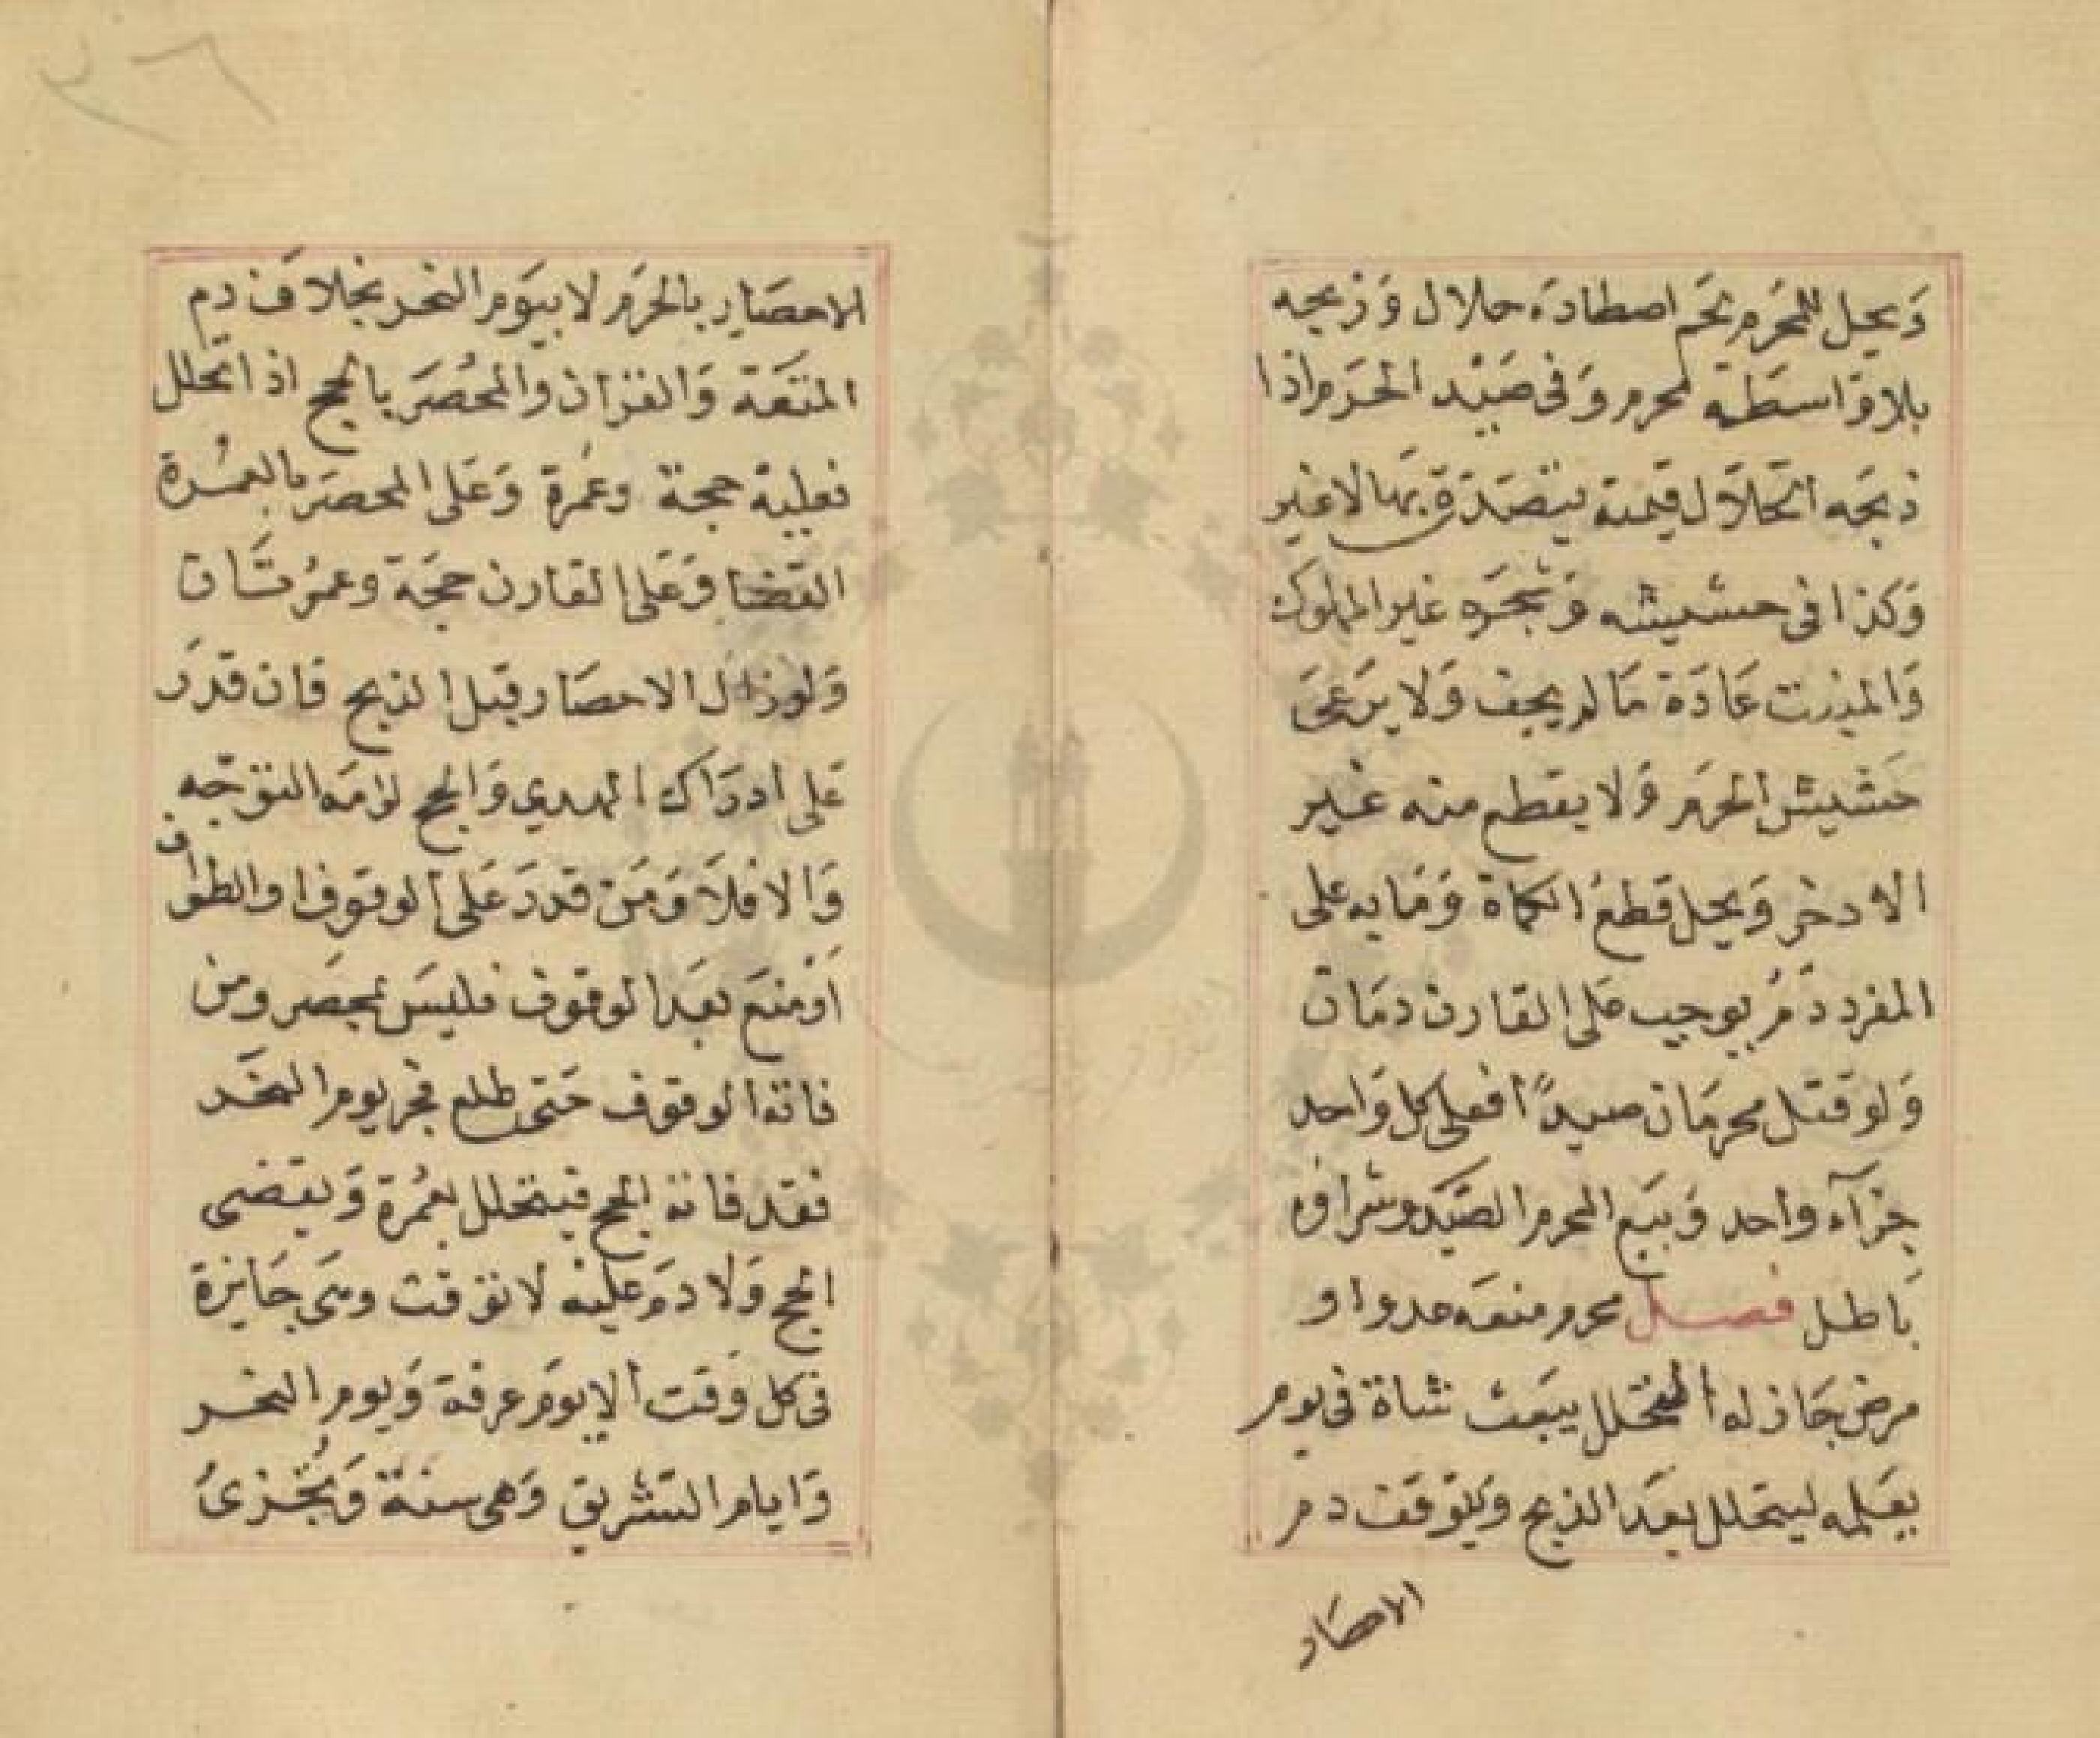 وَيحِل للمحَرم لحَم اصطادَه حلال وَذبحه
بلا وَاسطَة لمحرم وَفى صَيْد الحَرَم اذا
ذبحَه الحَلاَل قيمته يتصَدَق بهَا لا غير
وَكذا فى حشيشه وَشجَره غير المملوك
وَالمنبت عَادَة مَا لم يجف وَلا يرَعىَ
حَشيش الحرَم وَلا يقطع منه غير
الادخر وَيحل قطعُ الكماة وَمَا به على
المفرد دَمُ يوجب عَلى القارن دمَان
وَلو قتل محرمَان صيداً فعلى كل وَاحد
جزَآء واحد وَبيَع المحرم الصَيَد وشراؤه
بَاطل فصل محرم منعَه عدوا و
مرض جَاز له التحلل يبَعث شاة فى يوم
يعَلمه ليتحلل بعَد الذبح وَيتوَقت دم
الاحصَار
٢٦
الاحصَار بالحرَم لا بيَوم النحر بخلاف دم
المتعَة وَالقران والمحُصَر بالحج اذا تحلل
فعليه حجة وعُمرة وَعَلى المحصَر بالعمُرة
القضَا وَعَلى القارن حجَة وعمرُتَان
وَلو زال الاحصَار قبل الذبح فان قدرَ
عَلى ادرَاك الهدي وَالحج لزمَه التوَجّه
وَالا فلاَ وَمَن قدرَ عَلى الوقوف او الطواف
اَو منعَ بعَد الوقوف فليسَ بمحصَر ومن
فاته الوقوف حَتى طلع فجر يوم النحَر
فقد فاته الحج فيتحلل بعمُرة وَيقضى
الحج وَلا دمَ عليْه لا توقت وهىَ جَايزة
فى كل وَقت الا يومَ عرفة وَيوم النحر
وَايام التشريق وَهى سنة وَيُجزىُ